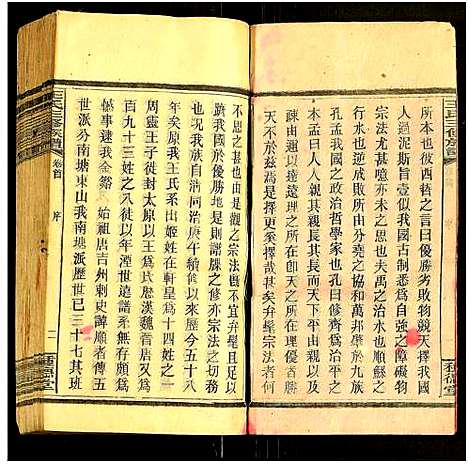 王氏三修族譜
所本也彼西瞽之言曰優勝劣敗物競天擇我國
人過泥斯旨壹似我國古制悉爲自強之障礙物
宗法尤甚噫亦未之思也夫禹之治水也順水性
堯之協和萬邦肇於九族
孔孟我國之政治哲學家也孔以修齊爲治平之
本孟曰人人親其親長其長而天下平
疎由邇以達遠理之所在即勢之所在理優者勝
天不於茲焉是擇而更奚擇哉 宗法者何
不思之甚也由是觀之宗法既不宜弁髦
躋我國於優勝地是則譜牒之修亦宗法之切務
矣我族自清同治庚午續修以來歷今五十八
年矣原我王氏系出姬姓在軒皇爲十四姓之一
周靈王子徙封太原以王爲氏歷漢魏晉唐 爲
百九十三姓之八徒以年湮世遠譜系無存 爲
憾事逮我金谿 始祖唐吉州刺史諱願者傳五
世派分南塘東山我南塘派歷世已三十七其班
王氏三修族譜 卷首 序 二